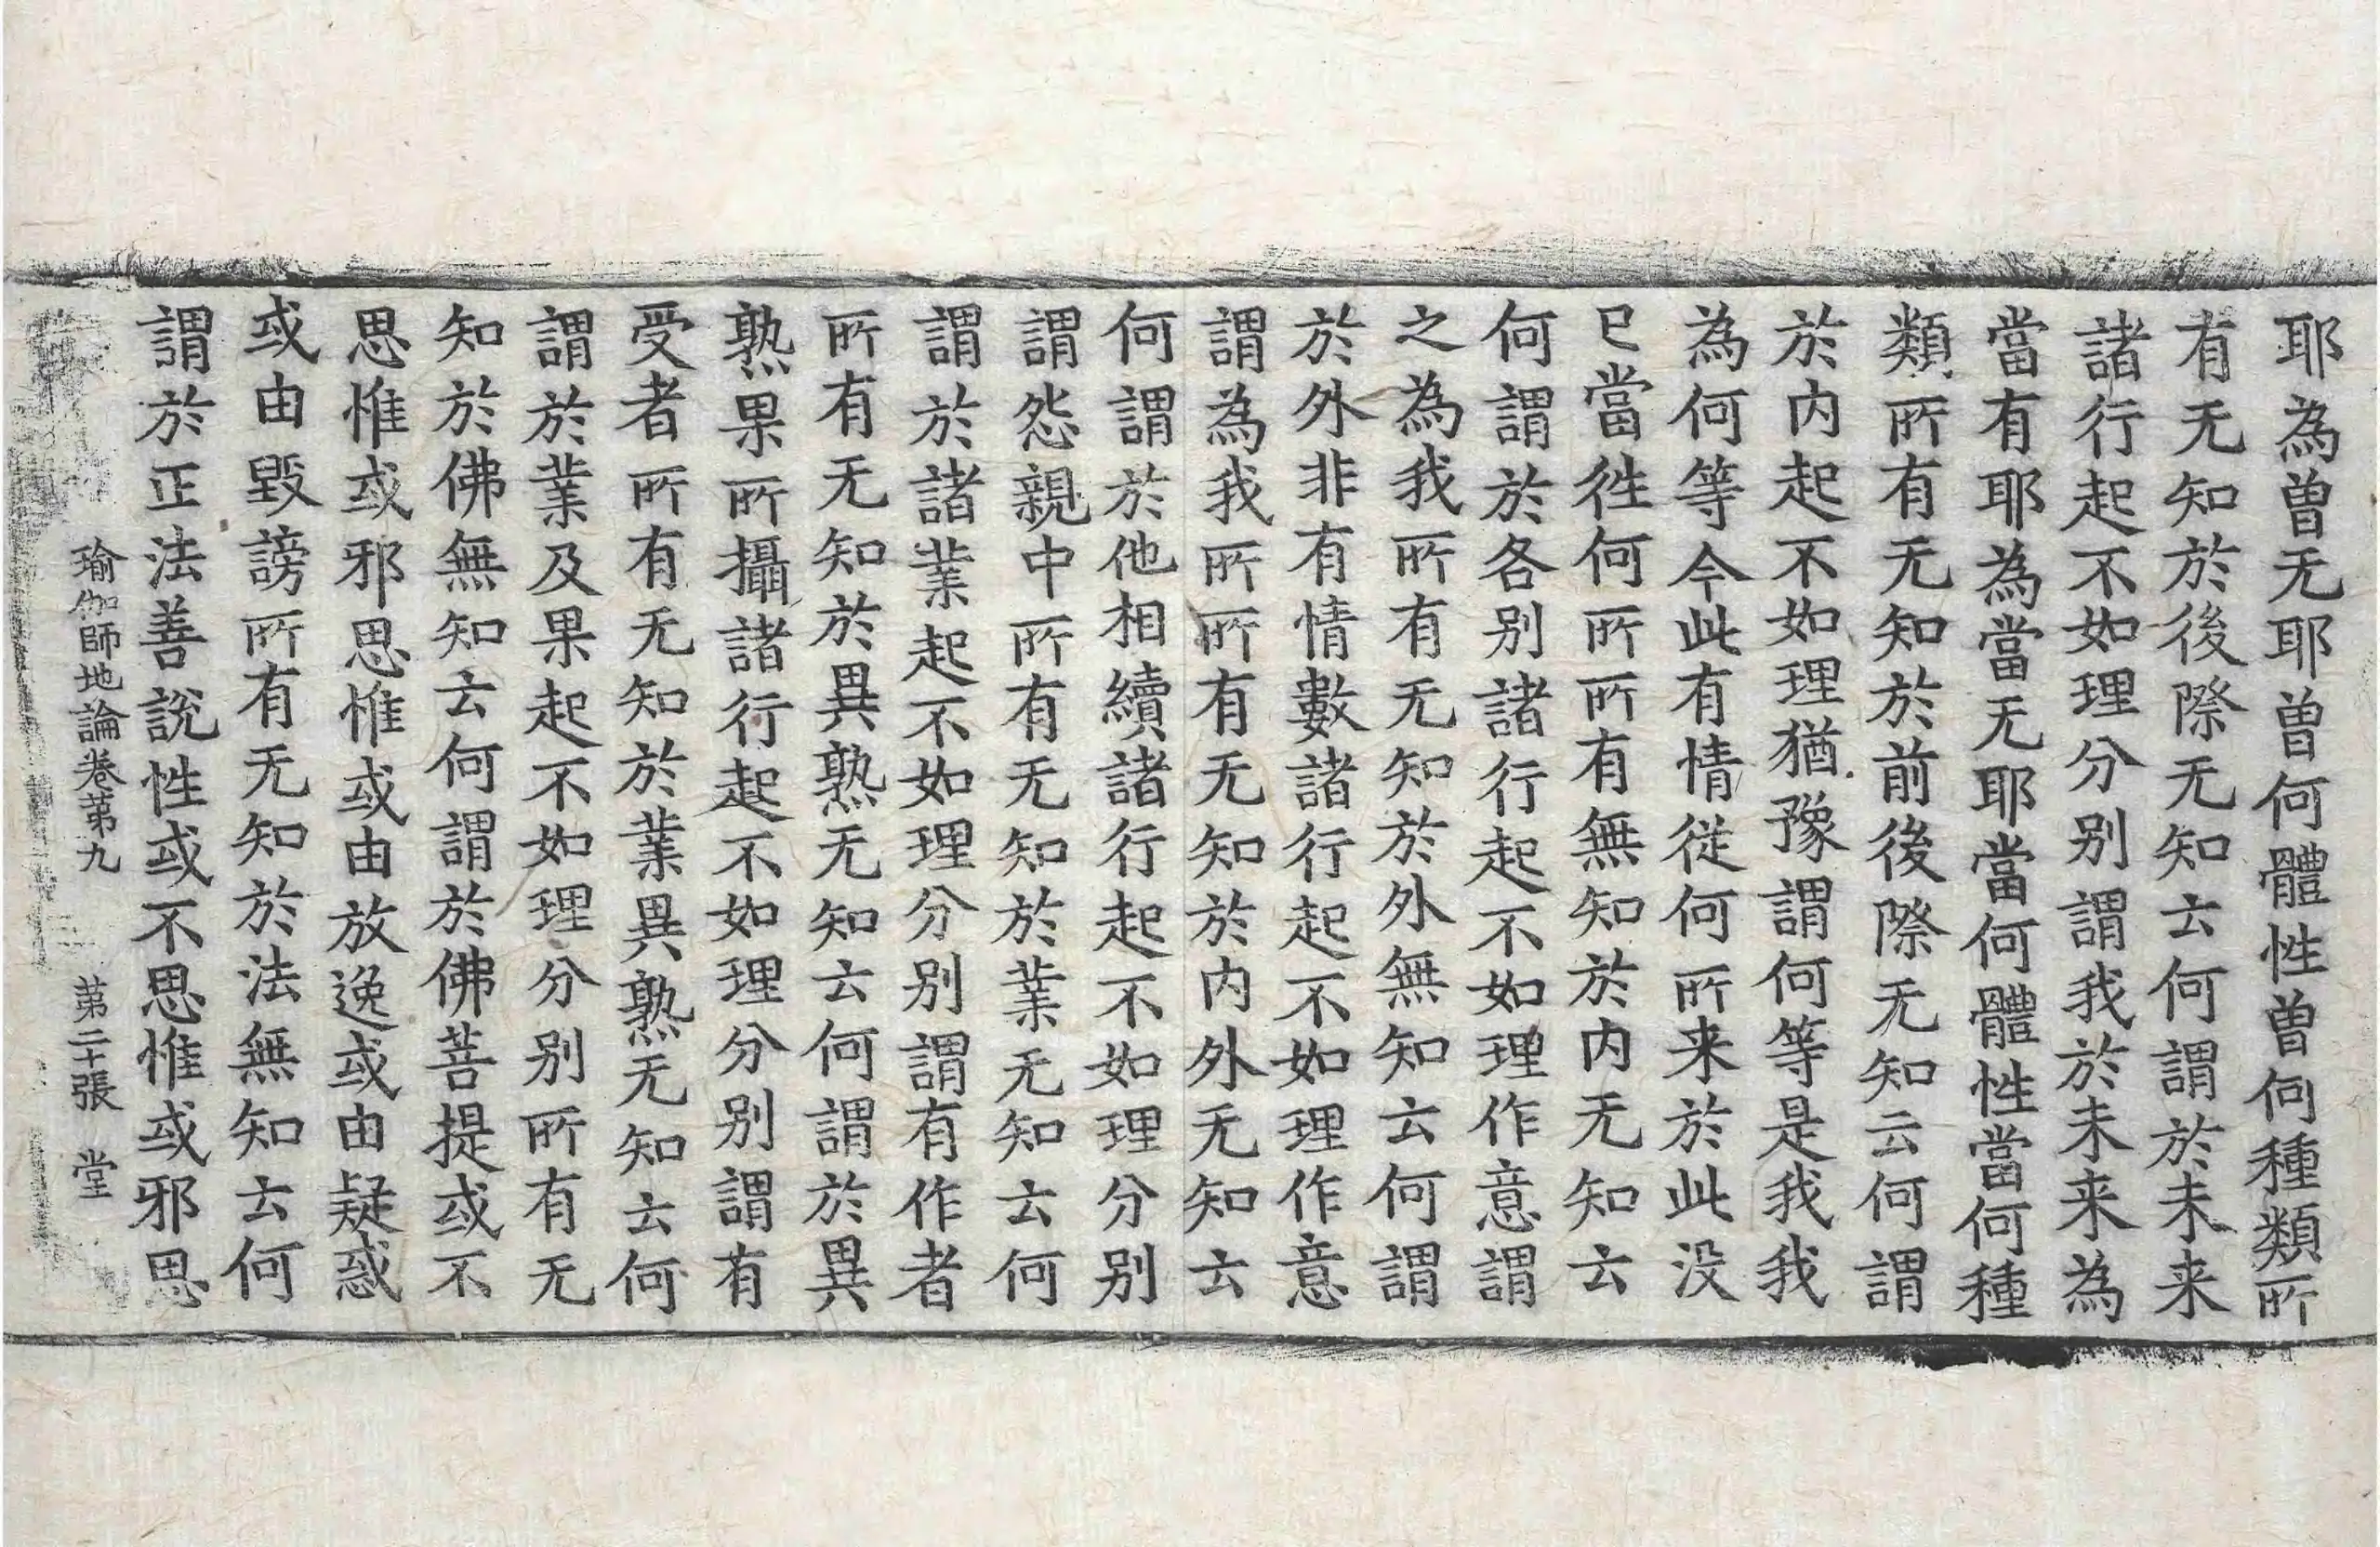 耶為曾无耶曾何體性曾何種類所
有无知於後際无知云何謂於未来
諸行起不如理分别謂我於未来為
當有耶為當无耶當何體性當何種
類所有无知於前後際无知云何謂
於内起不如理猶豫謂何等是我我
為何等今此有情從何所来於此没
已當徃何所所有無知於内无知云
何謂於各别諸行起不如理作意謂
之為我所有无知於外無知云何謂
於外非有情數諸行起不如理作意
謂為我所所有无知於内外无知云
何謂於他相續諸行起不如理分别
謂怨親中所有无知於業无知云何
謂於諸業起不如理分别謂有作者
所有无知於異熟无知云何謂於異
熟果所攝諸行起不如理分别謂有
受者所有无知於業異熟无知云何
謂於業及果起不如理分别所有无
知於佛無知云何謂於佛菩提或不
思惟或邪思惟或由放逸或由疑惑
或由毀謗所有无知於法無知云何
謂於正法善說性或不思惟或邪思
瑜伽師地論卷第九 第二十張 堂